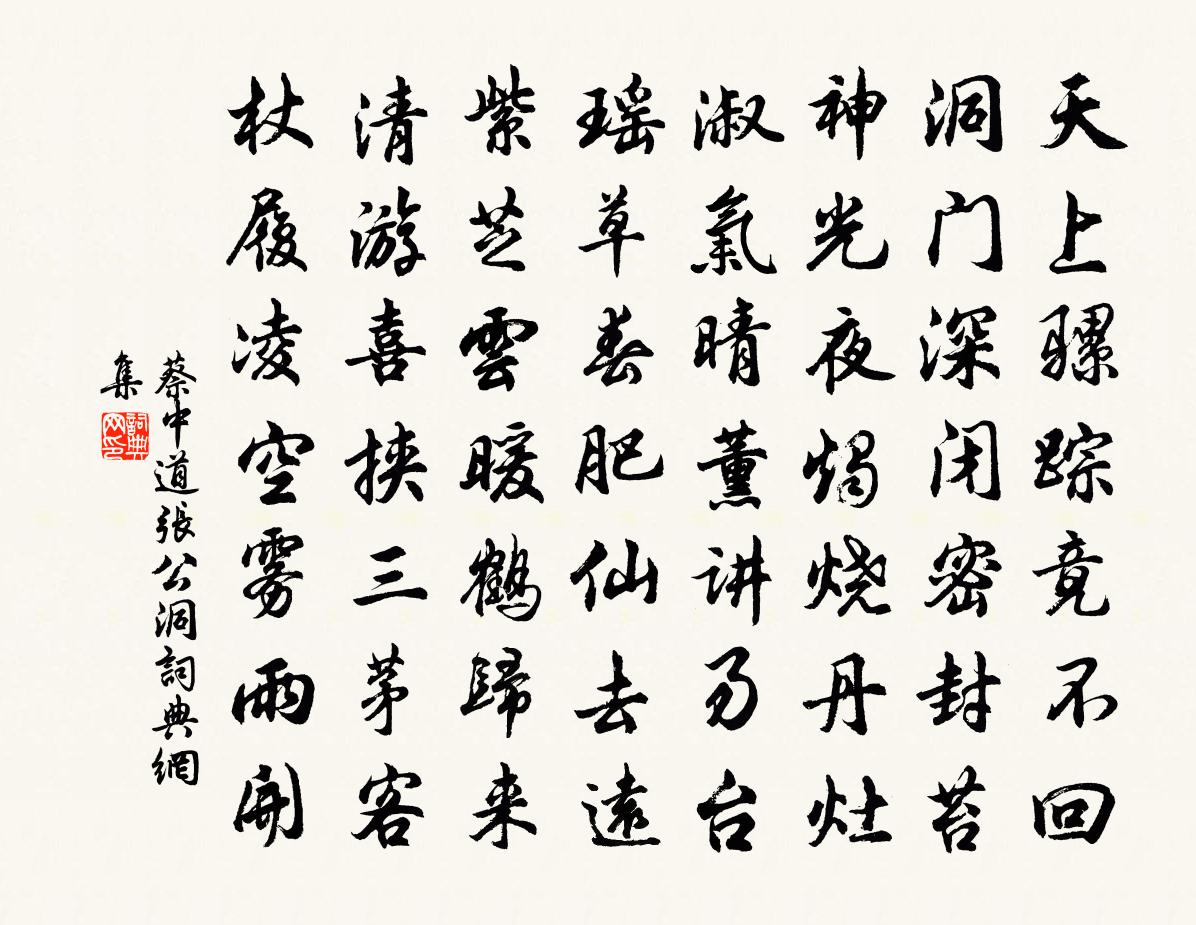 天上骡踪竟不回
洞门深闭密封苔
神光夜烛烧丹灶
淑氣晴薰讲易台
瑶草春肥仙去遠
紫芝雲暖鶴歸来
清游喜挟三茅客
杖履凌空雾雨開
蔡中道張公洞詞典網
集
詞典
网印